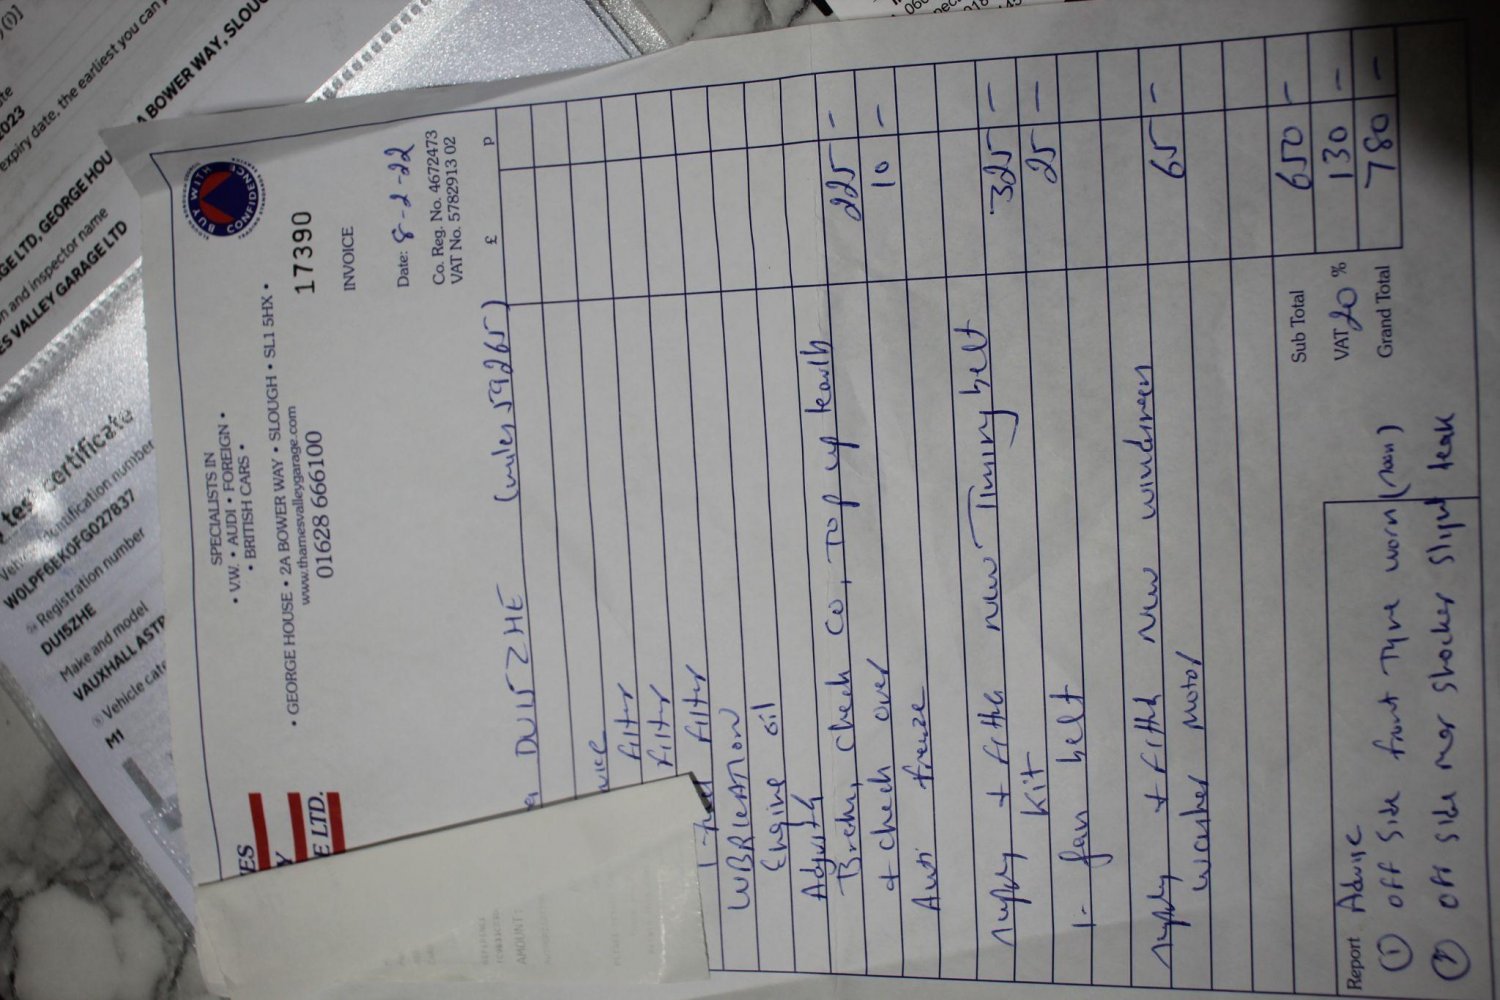 SPECIALISTS IN
• V.W. • AUDI • FOREIGN •
• BRITISH CARS •
• GEORGE HOUSE • 2A BOWER WAY • SLOUGH • SL1 5HX •
www.thamesvalleygarage.com
01628 666100
BUY WITH CONFIDENCE
17390
INVOICE
Date: 8-2-22
Co. Reg. No. 4672473
VAT No. 5782913 02
ES
Y
E LTD.
£ p
DU15 ZHE (miles 59265)
Filter
Filter
1- Fuel Filter
LUBRICATION
Engine oil
Adjusts
Brakes, check Co, Top up levels 225 -
+ check over 10 -
Anti freeze
supply + fitted new Timing belt 325 -
Kit 25 -
1- fan belt
supply + fitted new windscreen 65 -
washer motor
Sub Total 650 -
VAT 20 % 130 -
Grand Total 780 -
Report Advise
① off side front Tyre worn (soon)
② off side rear shocker slight leak
test certificate
Vehicle identification number
W0LPF6EK0FG027837
Registration number
DU15ZHE
Make and model
VAUXHALL ASTR
Vehicle cate
M1
2023
expiry date. the earliest you can
A BOWER WAY, SLOUG
GE LTD, GEORGE HOU
on and inspector name
ES VALLEY GARAGE LTD
AMOUNT: